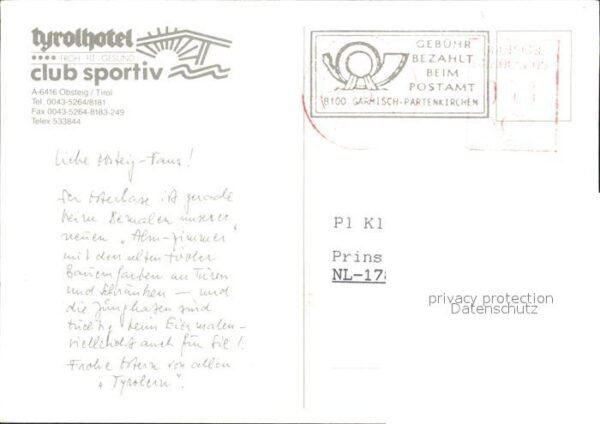 tyrolhotel
FROH · FIT · GESUND
club sportiv
A-6416 Obsteig / Tirol
Tel. 0043-5264/8181
Fax 0043-5264-8183-249
Telex 533844
GEBÜHR
BEZAHLT
BEIM
POSTAMT
8100 GARMISCH-PARTENKIRCHEN
Liebe Obsteig-Fans!
Der Osterhase ist gerade
beim Bemalen unserer
neuen "Alm-Zimmer"
mit den alten Tiroler
Bauernfarben an Türen
und Schränken – und
die Junghasen sind
tüchtig beim Eier malen –
vielleicht auch für Sie!
Frohe Ostern von allen
"Tyrolern".
Pl Kl
Prins
NL-178
privacy protection
Datenschutz